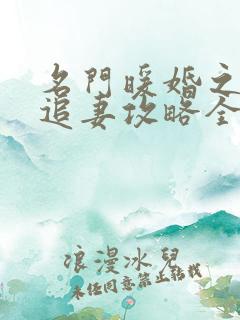 名門暖婚之
追妻攻略全
浪漫冰兒
未经同意禁止转载